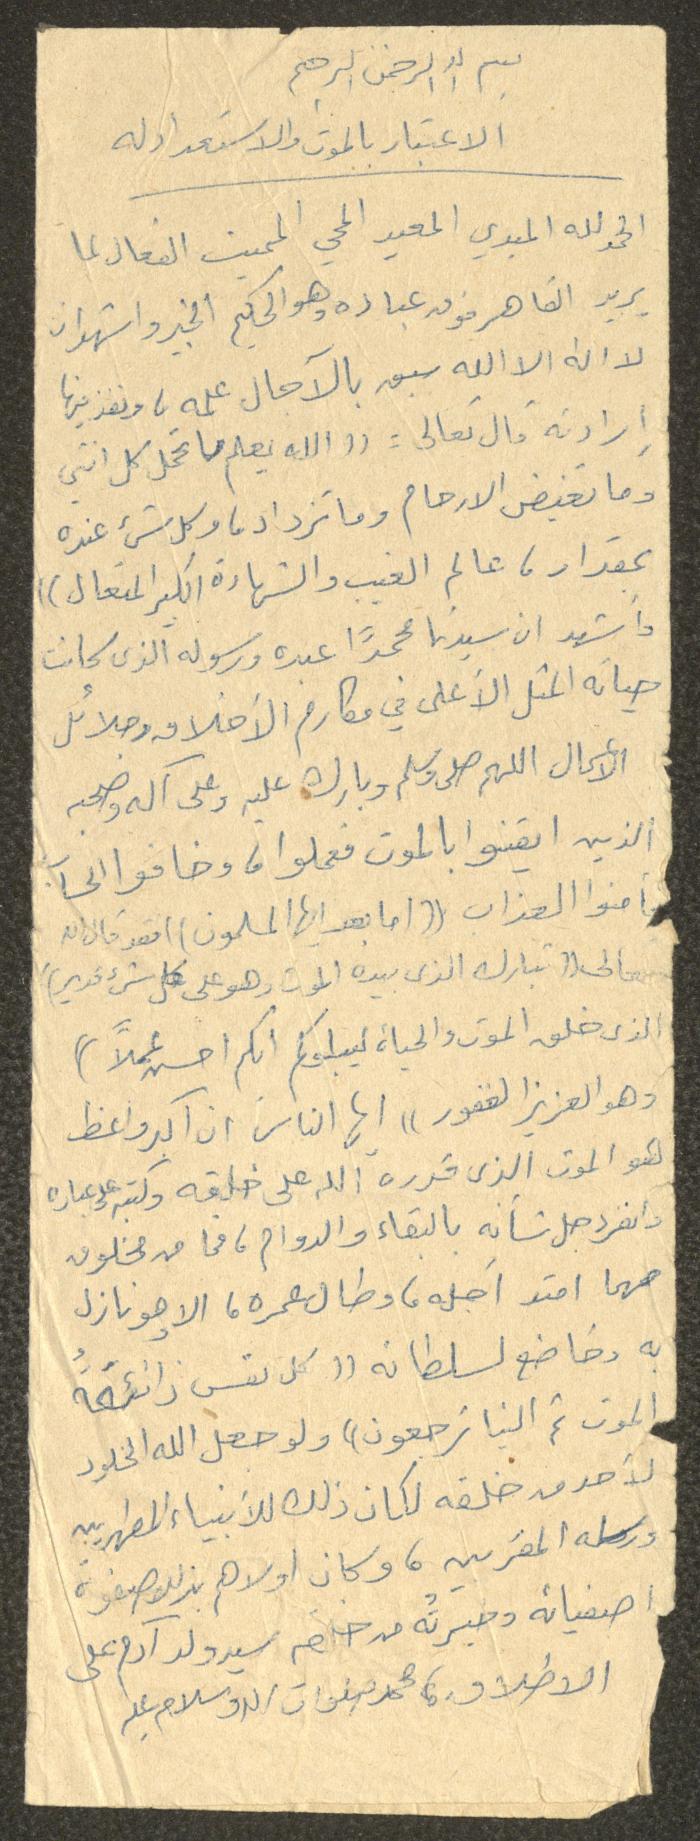 بسم الله الرحمن الرحيم
الاعتبار بالموت والاستعداد له
الحمد لله المبدي المعيد المحي المميت الفعال لما
يريد القاهر فوق عباده وهو الحكيم الخبير واشهد ان
لا اله الا الله سبق بالآجال علمه ، ونفذ فيها
إرادته قال تعالى : (( الله يعلم ما تحمل كل انثى
وما تغيض الارحام وما تزداد ، وكل شئ عنده
بمقدار ، عالم الغيب والشهادة الكبير المتعال ))
وأشهد ان سيدنا محمدًا عبده ورسوله الذى كانت
حياته المثل الأعلى في مكارم الأخلاق وجلائل
الاعمال اللهم صلى وسلم وبارك عليه وعلى آله وصحبه
الذين ايقنوا بالموت فعملوا ، وخافوا الحساب
فأمنوا العذاب (( اما بعد ايها المسلمون )) فقد قال الله
تعالى (( تبارك الذى بيده الموت وهو على كل شئ قدير ))
الذى خلق الموت والحياة ليبلوكم ايكم احسن عملاً ))
وهو العزيز الغفور )) ايها الناس ان اكبر واعظ
لهو الموت الذى قدره الله على خلقه وكتبه على عباده
وانفرد جل شأنه بالبقاء والدوام ، فما من مخلوق
مهما امتد أجله ، وطال عمره ، الا وهو نازل
به وخاضع لسلطانه (( كل نفس ذائقةُ
الموت ثم الينا ترجعون )) ولو جعل الله الخلود
لأحد من خلقه لكان ذلك للأنبياء المطهرين
ورسله المقربين ، وكان اولاهم بذلك صفوة
اصفيائه وخيرتُه من خلقه سيد ولد آدم على
الاطلاق ، محمد صلوات الله وسلامه عليه